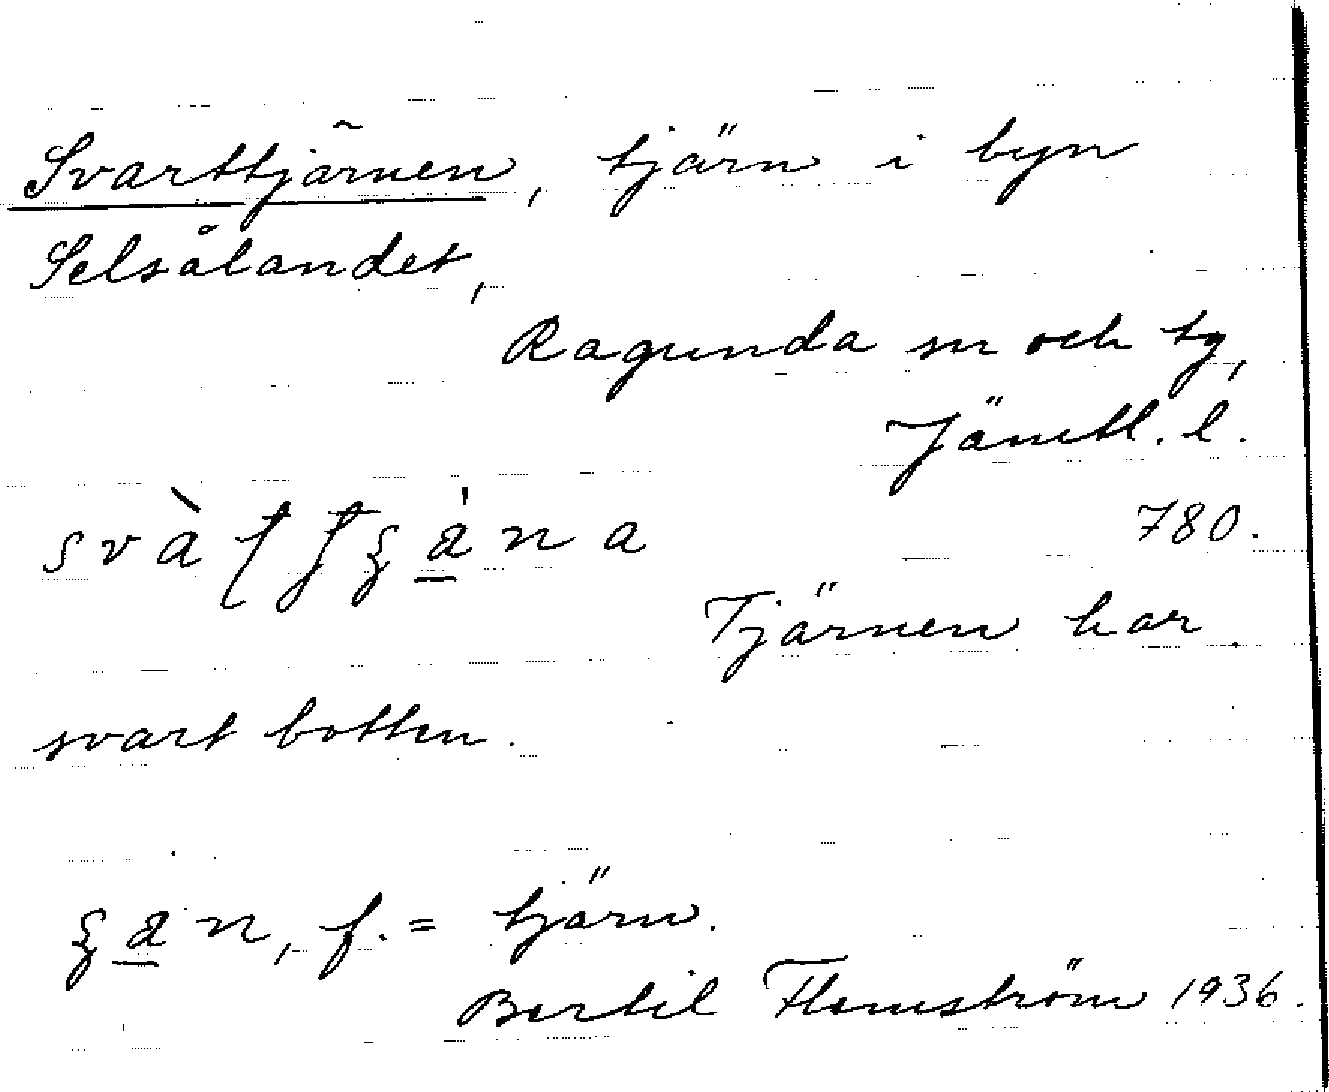 Svarttjärnen, tjärn i byn
Selsålandet,
Ragunda sn och tg,
Jämtl. l.
780.
Tjärnen har
svart botten.
f. = tjärn.
Bertil Flemström 1936.